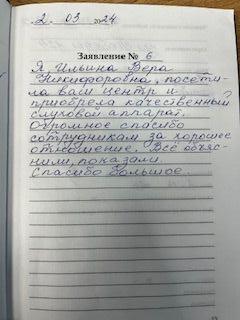 2. 03 2024
Заявление № 6
Я Ильина Вера
Никифоровна, посети-
ла ваш центр и
приобрела качественный
слуховой аппарат.
Огромное спасибо
сотрудникам за хорошее
отношение. Всё объяс-
нили, показали.
Спасибо большое.